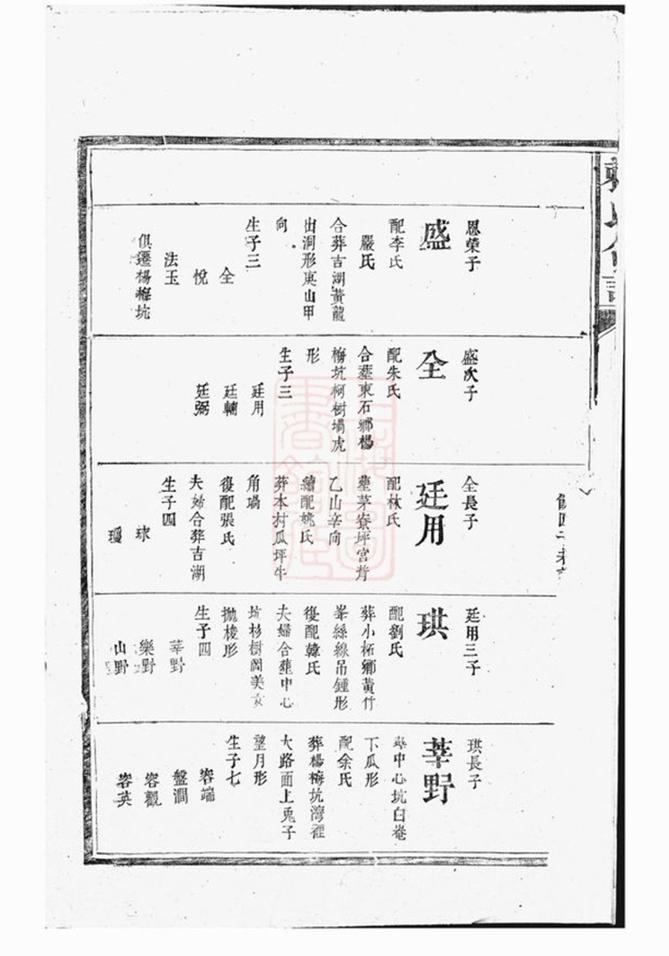 恩榮子
盛
配李氏
嚴氏
合葬吉湖黃龍
出洞形庚山甲
向
生子三
全
悅
法玉
俱遷楊梅坑
盛次子
全
配朱氏
合塟東石鄉楊
梅坑柯樹塥虎
形
生子三
廷用
廷輔
廷弼
全長子
廷用
配林氏
塟茅寮坪宮背
乙山辛向
續配姚氏
葬本村瓜坪牛
角塥
復配張氏
夫婦合葬吉湖
生子四
球
廷用三子
珙
配劉氏
葬小柘鄉黃竹
峯絲線吊鍾形
復配韓氏
夫婦合塟中心
坑杉樹岡美女
拋梭形
生子四
莘野
樂野
山野
珙長子
莘野
塟中心坑白菴
下瓜形
配余氏
葬楊梅坑灣裡
大路面上兎子
望月形
生子七
容端
盤澗
容觀
容英